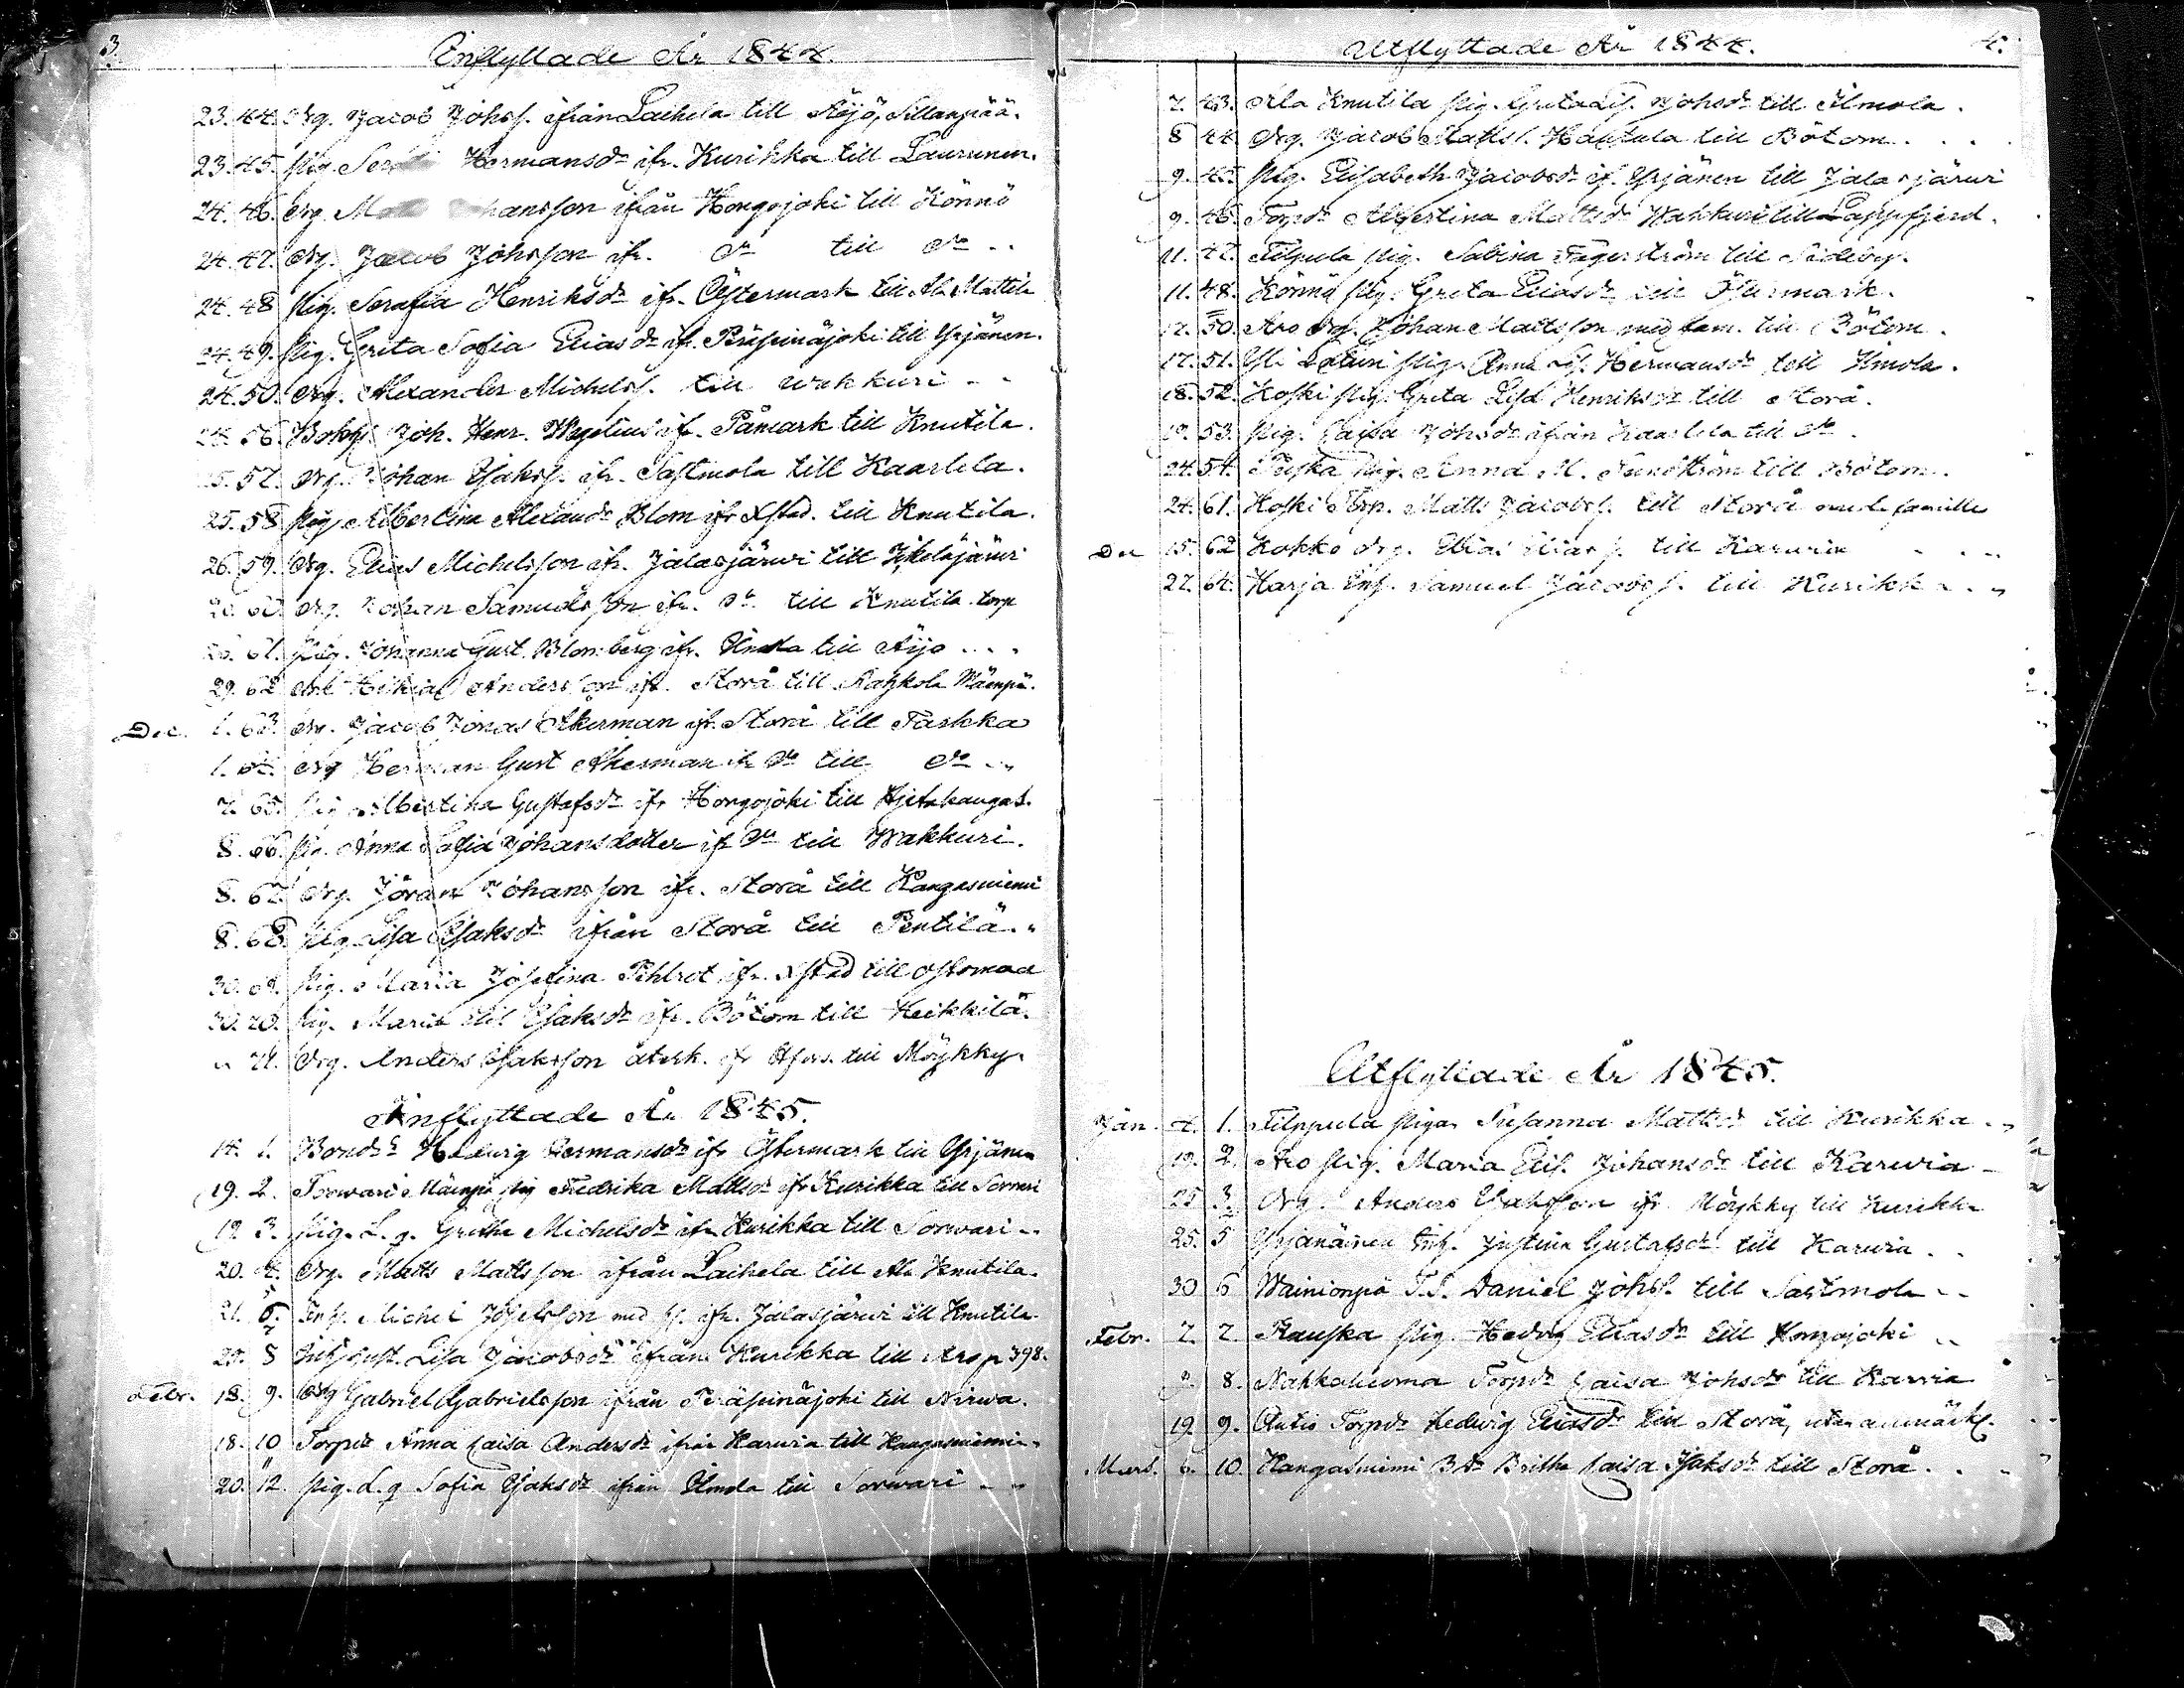 3.
Inflyttade År 1844.
23. 44. Drg. Jacob Johss. ifrån Laihela till Äijö, Sillanpää.
23. 45. Pig. Hermansdr ifr. Kurikka till Laurunen.
24. 46. Drg. Matts Johansson ifrån Hongojoki till Könnö
24. 47. Drg. Jacob Johsson ifr. do till do ..
24. 48 Pig. Serafia Henriksdr ifr. Östermark till Ala Mattila
24. 49. Pig. Greta Sofia Eliasdr ifr. Peräseinäjoki till Yrjänen.
24. 50. Drg. Alexander Michelss. till Wakkuri ..
24. 56. Bokh. Joh. Henr. Wegelius ifr. Påmark till Knutila.
25. 57. Drg. Johan Isakss. ifr. Sastmola till Kaarlela.
25. 58 Pig. Albertina Alexandr Blom ifr. Xstad. till Knutila.
26. 59. Drg. Elias Michelsson ifr. Jalasjärwi till Ikeläjärwi
26. 60. Drg. Johan Samuelsson ifr. do till Knutila torp
26. 61. Pig. Johanna Gust. Blomberg ifr. Ilmola till Äijö ...
29. 62 Andersson ifr. Storå till Rahkola Mäenpä.
Dec. 1. 63. Drg. Jacob Jonas Åkerman ifr. Storå till Taskka
1. 64. Drg Herman Gust Åkerman ifr do till do ..
7. 65. Pig Albertina Gustafsdr ifr Hongojoki till Hjetakangas.
8. 66. Pig. Anna Sofia Johansdotter ifr do till Wakkuri.
8. 67. Drg. Jöran Johansson ifr. Storå till Kangasniemi
8. 68. Pig. Lisa Isaksdr ifrån Storå till Pentilä ..
30. 69. Pig. Maria Josefina ifr. Xstad till
30. 70. Pig. Maria Isaksdr ifr. Bötom till Heikkilä.
" 71. Drg. Anders Isaksson återk. ifr till Möykky.
Inflyttade År 1845.
14. 1. Bondd. Hedwig Hermansdr ifr Östermark till Yrjänen
19. 2. Sorwari Mäenpä pig Fredrika Mattsdr ifr Kurikka till Sorwari
19. 3. Pig. L. g. Grethe Michelsdr ifr Kurikka till Sorwari ..
20. 4. Drg. Matts Mattsson ifrån Laihela till Ala Knutila.
21. 5. Inh. Michel Josefsson med ifr. Jalasjärwi till Knutila.
25. 8 Inh. Lisa Jacobsdr ifrån Kurikka till Aro p 398.
Febr. 18. 9. Drg Gabriel Gabrielsson ifrån Peräseinäjoki till Nirwa.
18. 10 Torpd. Anna Caisa Andersdr ifrån Karwia till Kangasniemi.
20. 12. Pig. L. g Sofia Isaksdr ifrån Ilmola till Sorwari ..
Utflyttade År 1844. 4.
7. 43. Ala Knutila Pig. Greta Lis. Johsdr till Ilmola.
8 44 Drg. Jacob Mattss. Hautala till Bötom ...
9. 45 Pig. Elisabeth Jacobsdr if. Yrjänen till Jalasjärwi
9. 46. Torpdr Albertina Mattsdr Wakkuri till Lappfjerd.
11. 47. Filpula Pig. Sabina Fagerström till Sideby.
11. 48. Könnö Pig. Greta Eliasdr till Östermark.
12. 50. Aro Drg. Johan Mattsson med fam. till Bötom.
17. 51. Yli Lauri Pig. Anna Lis. Hermansdr till Ilmola.
18. 52. Koski Pig. Greta Lisa Henriksdr till Storå.
19. 53. Pig. Caisa Johsdr ifrån Kaarlela till do.
24. 54. Puska Pig. Anna M. Sundström till Bötom.
24. 61. Koski Torp. Matts Jacobss. till Storå med familie
Dec 15. 62 Kokko Drg. Elias Eliass. till Karwia ...
27. 64. Harja Inh. Samuel Jacobss. till Kurikka ..
Utflyttade År 1845.
Jan. 4. 1. Filppula Pigan Susanna Mattsdr till Kurikka ..
19. 2. Aro Pig. Maria Elis. Johansdr till Karwia
25 3. Drg. Anders Isaksson ifr. Möykky till Kurikka
25. 5 Yrjänäinen Inh. Justina Gustafsdr till Karwia ..
30 6 Wainionpä T.S. Daniel Johss. till Sastmola ..
Febr. 7. 7. Rauska Pig. Hedvig Eliasdr till Hongojoki ..
9. 8. Nahkaluoma Torpdr Caisa Johsdr till Karwia
19. 9. Autio Torpdr Hedwig Eliasdr till Storå, utan anmärkn.
Mars. 6. 10. Kangasniemi B.dr Britha Caisa Isaksdr till Storå ..